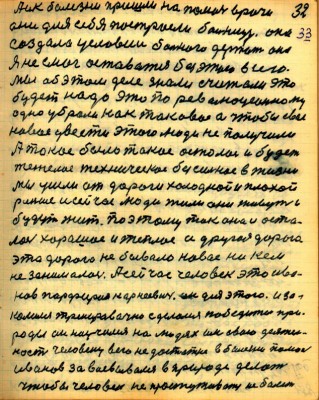 А как болезни пришли на помощ врачи 32
они для себя построели больницу. она 33
создала условии больного держит она
Я не смог оставатся без этого всего.
мы об этом деле знали считали это
будет надо это по революционному
одно убрали как таковое а чтобы свое
новое увести этого люди не получили
А токое было такое осталос и будет
тяжелое техническое бусиное в жизни
мы ушли от дороги холодной и плохой
раньше и сейчас люди жили они живут и
будут жит. поэтому так она и оста-
лас хорошое и теплое а другая дорога
эта дорога не бывало новае ни кем
не занималас. А сейчас человек это ива-
нов парфирий карнеевич. он для этого. и за-
колился тренировачно сделался победител при-
роды он научился на людях их свою деятел-
ность человеку всего недостатке в болезни помог
иванов завоевывался в природе делат
чтобы человек не простуживатся не болел